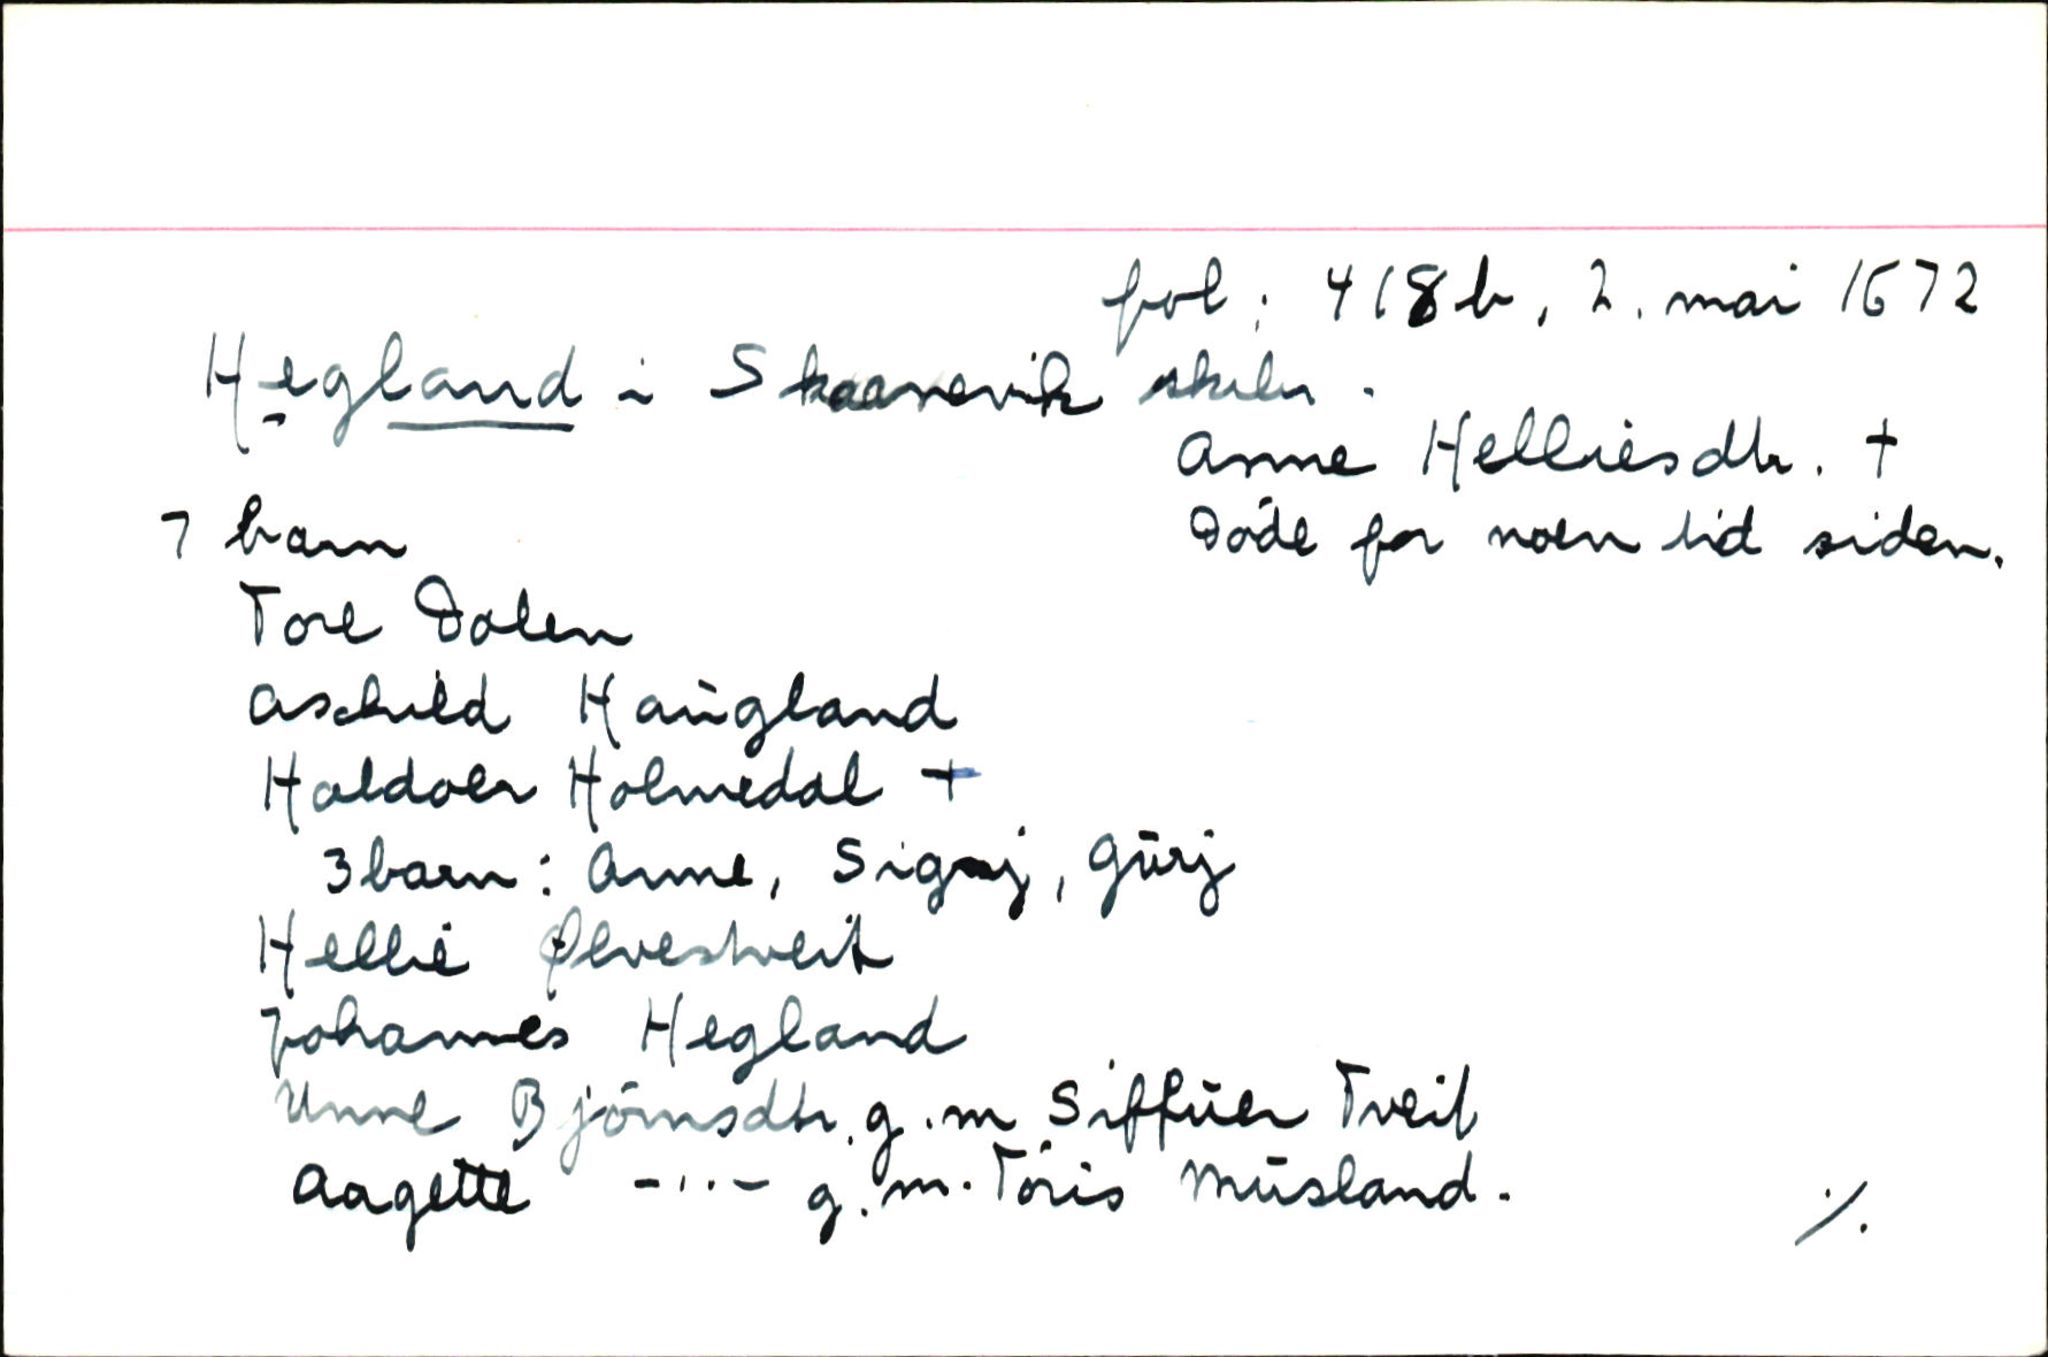 fol: 418b, 2. mai 1672
Hegland i Skaanevik skibr.
Anne Helliesdtr. †
Døde for noen tid siden.
7 barn
Tore Dalen
Aschild Haügland
Haldoer Holmedal †
3 barn: Anne, Signj, Gürj
Hellie Ølvestveit
Johannes Hegland
Unne Bjørnsdtr. g.m Siffüer Tveit
Aagette -"- g.m. Tøris Müsland.
./.